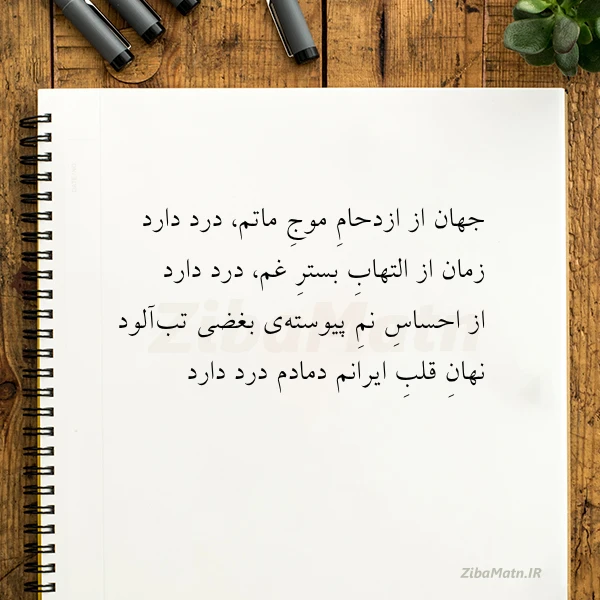 جهان از ازدحامِ موجِ ماتم، درد دارد
زمان از التهابِ بسترِ غم، درد دارد
از احساسِ نمِ پیوسته‌ی بغضی تب‌آلود
نهانِ قلبِ ایرانم دمادم درد دارد
ZibaMatn
ZibaMatn.IR